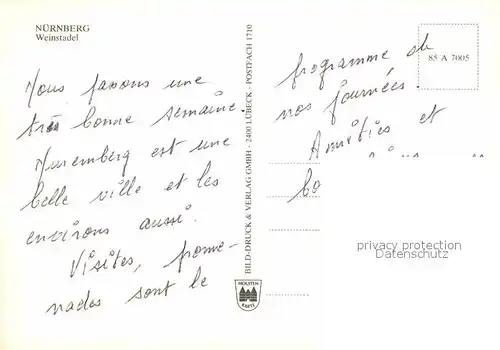 NÜRNBERG
Weinstadel
Nous passons une
très bonne semaine.
Nuremberg est une
belle ville et les
environs aussi.
Visites, prome-
nades sont le
BILD-DRUCK & VERLAG GMBH - 2400 LÜBECK - POSTFACH 1710
HOLSTEN
KARTE
85 A 7005
programme de
nos journées.
Amitiés et
bo
privacy protection
Copyright ansichtskarten-center.de